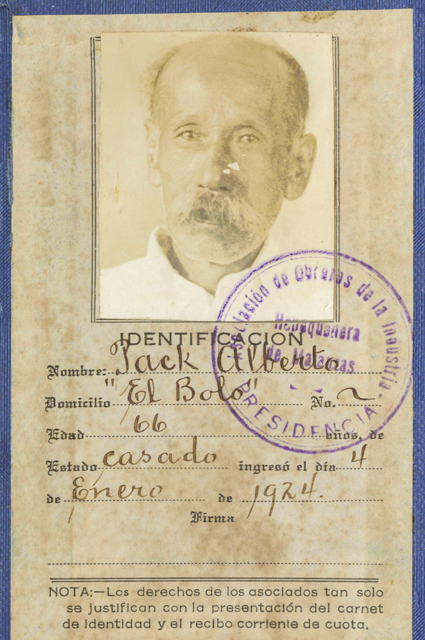 IDENTIFICACION
Nombre: Jack Alberto
Domicilio "El Bolo" No. 2
Edad 66 años, de
Estado casado ingresó el día 4
de Enero de 1924.
Firma
NOTA:—Los derechos de los asociados tan solo
se justifican con la presentación del carnet
de identidad y el recibo corriente de cuota.
Asociación de Obreros de la Industria
Henequenera
de Matanzas
PRESIDENCIA